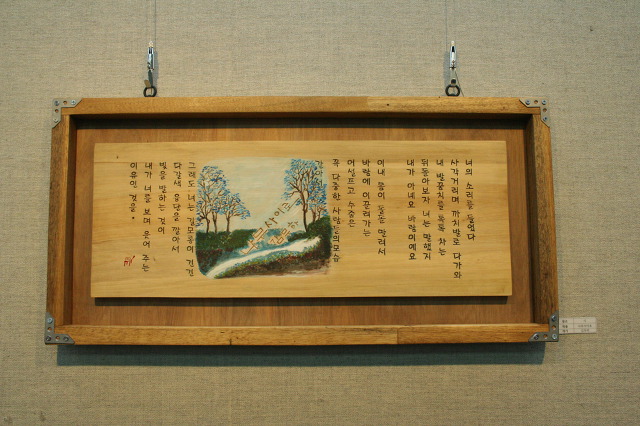 너의 소리를 들었다
사각거리며 까치발로 다가와
내 발꿈치를 톡톡 차는
뒤돌아보자 너는 말했지
내가 아네요 바람이예요
이내 몸이 돌돌 말려서
바람에 이끌려가는
어설프고 수줍은
꼭 다중한 사람들의 모습
그래도 너는 길모퉁이 건건
다갈색 융단을 깔아서
빛을 발하는 것이
내가 너를 보며 웃어 주는
이유인 것을.